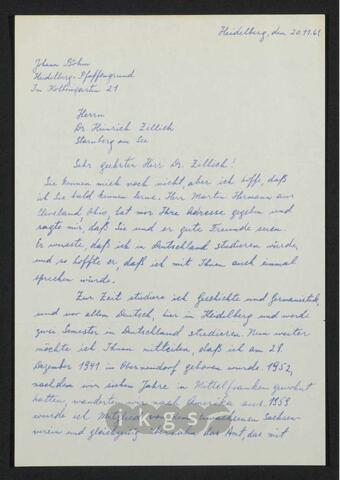 Heidelberg, den 20.11.61
Johann Böhm
Heidelberg-Pfaffengrund
Im Kolbengarten 21
Herrn
Dr. Heinrich Zillich
Starnberg am See
Sehr geehrter Herr Dr. Zillich!
Sie kennen mich noch nicht, aber ich hoffe, daß
ich Sie bald kennen lerne. Herr Martin Hermann aus
Cleveland, Ohio, hat mir Ihre Adresse gegeben und
sagte mir, daß Sie und er gute Freunde seien.
Er wusste, daß ich in Deutschland studieren würde,
und so hoffte er, daß ich mit Ihnen auch einmal
sprechen würde.
Zur Zeit studiere ich Geschichte und Germanistik,
und vor allem Deutsch, hier in Heidelberg und werde
zwei Semester in Deutschland studieren. Nun weiter
möchte ich Ihnen mitteilen, daß ich am 28.
Dezember 1941 in geboren wurde. 1952,
nachdem wir sieben Jahre in Mittelfranken gewohnt
hatten, wanderten wir nach Amerika aus. 1959
wurde ich Mitglied Sachsen-
verein und gleichzeitig übernahm das Amt, das mit
ikgs